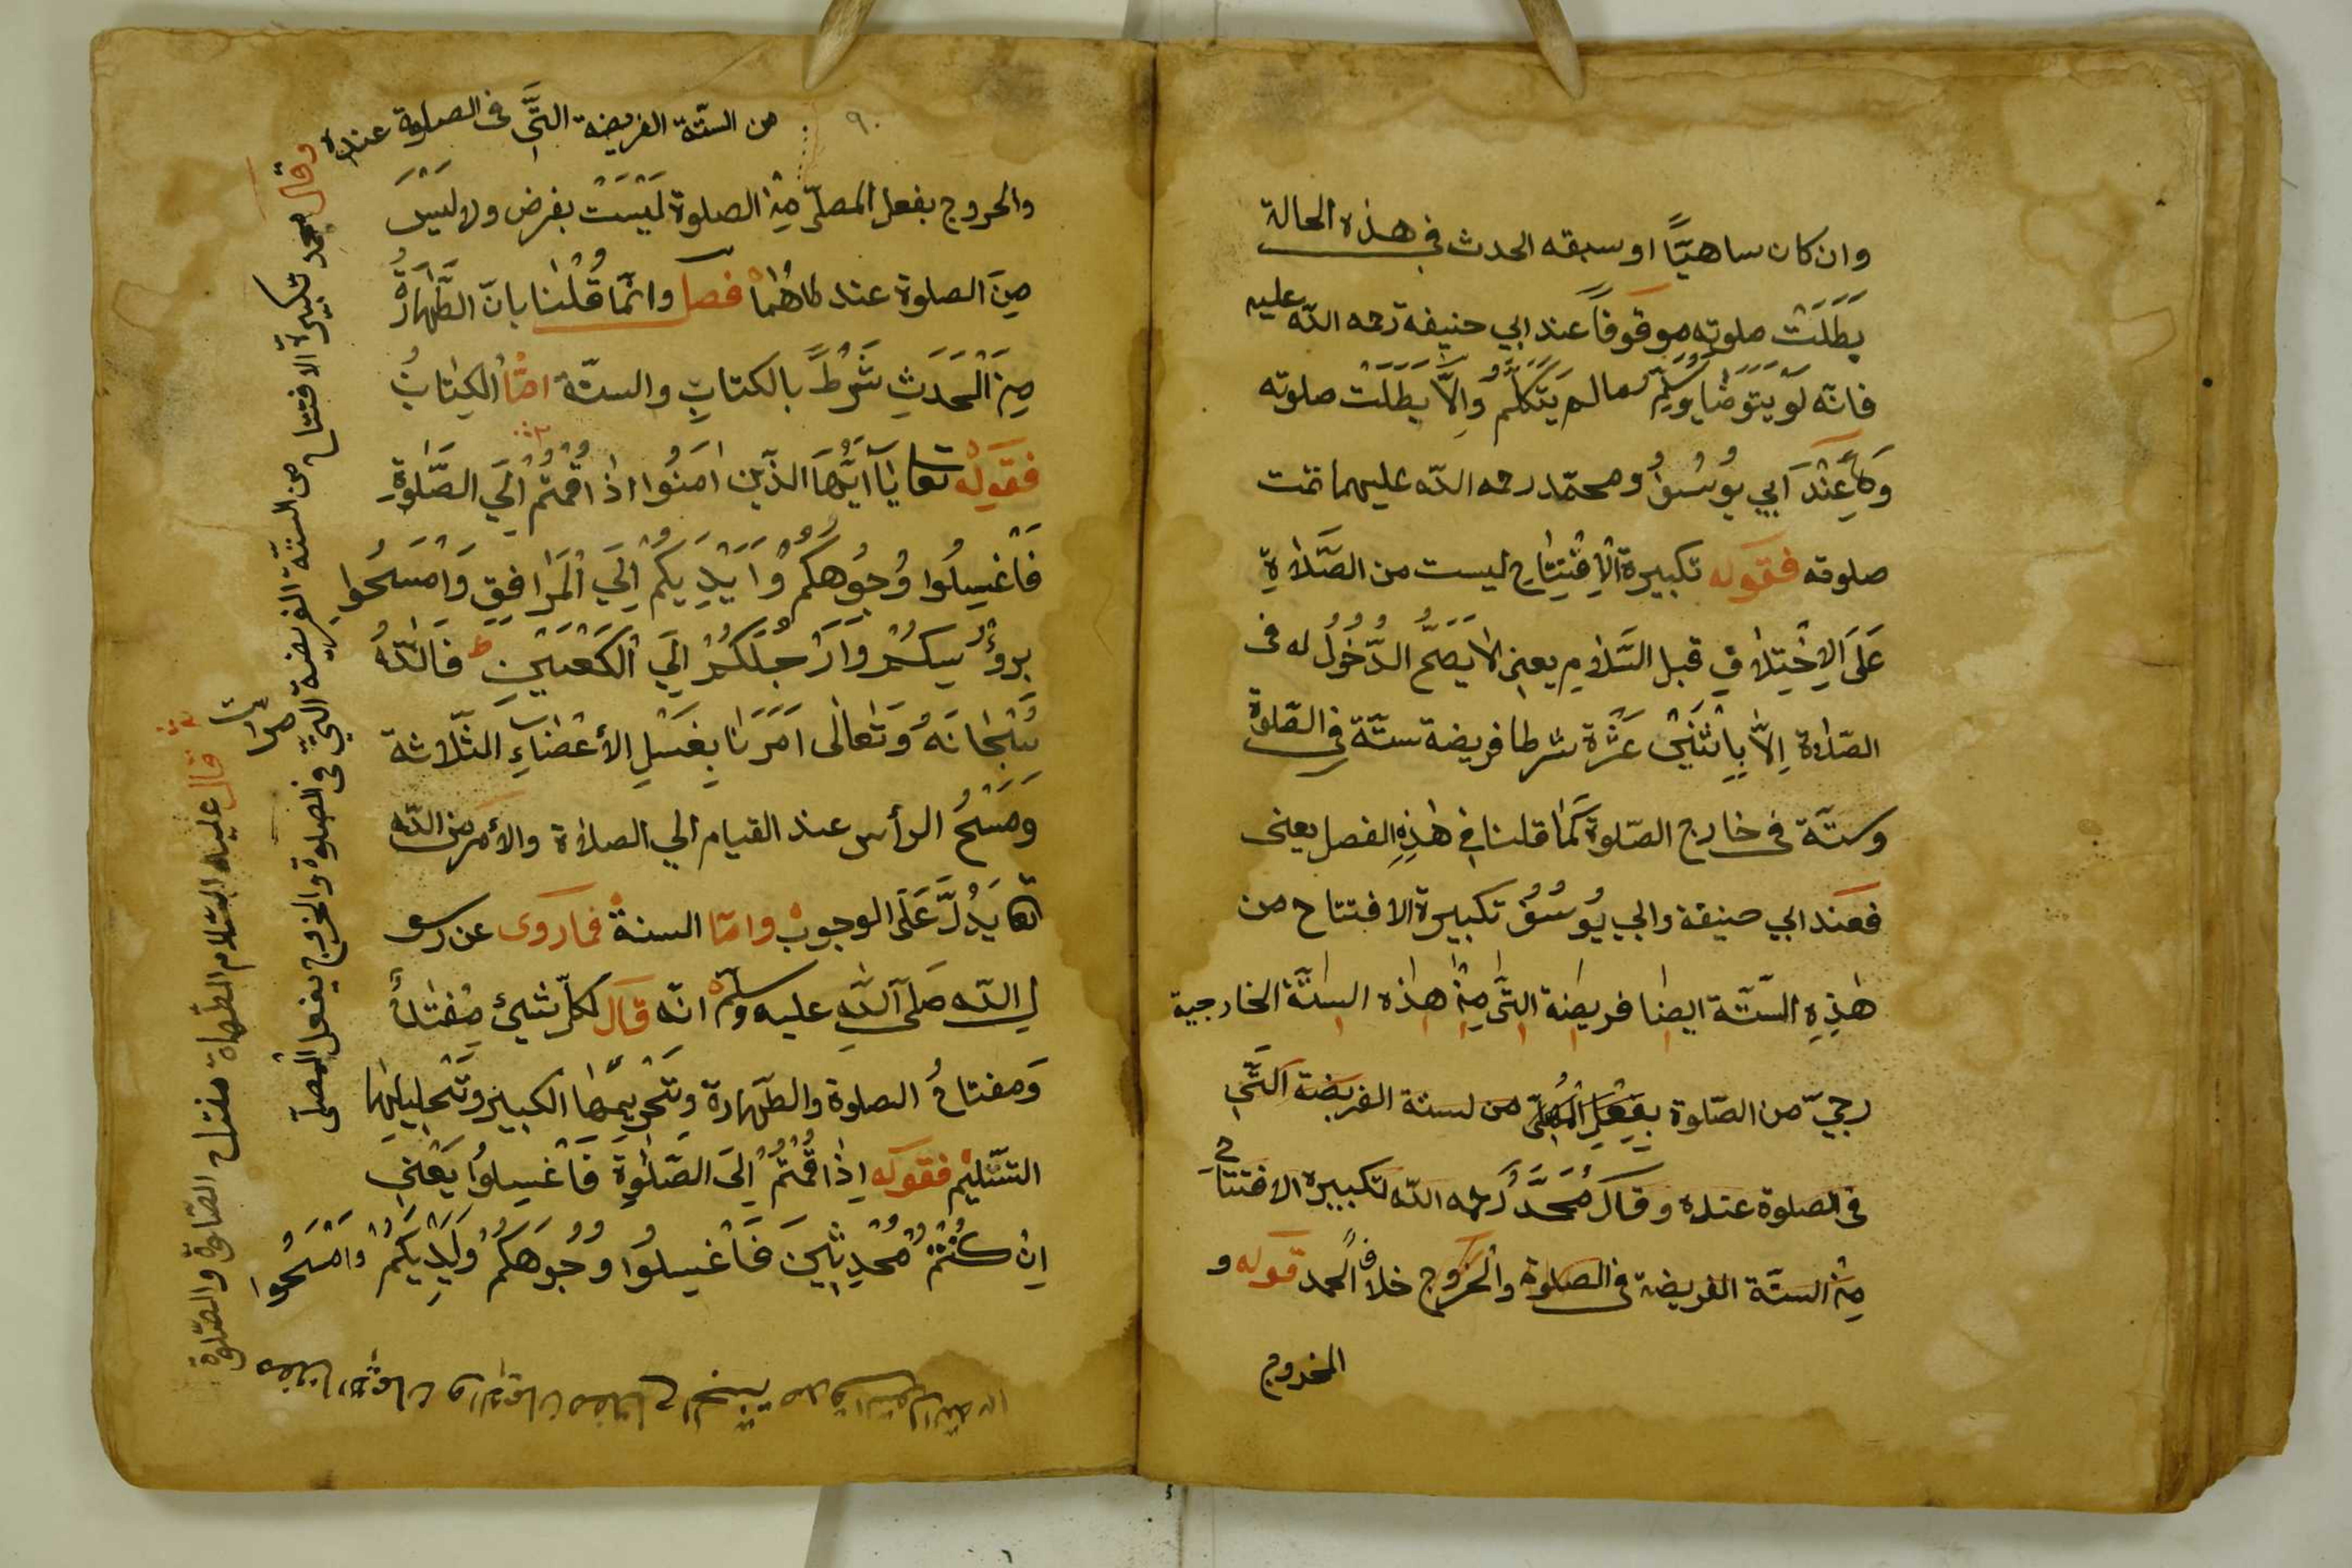 وان كان ساهيًّا او سبقه الحدث في هذه الحالة
بَطَلَتْ صلوته موقوفًا عند ابي حنيفة رحمه اللّه عليه
فانّه لَوْ يَتَوَضَّأ وَيُسَلِّمُ مالم يَتَكَلَّمْ وَاِلاَّ بَطَلَتْ صلوته
وَعِنْدَ اَبي يُوسُفُ ومحمّد رحمه اللّه عليهما تمت
صلوته فقوله تكبيرة الاِفْتِتَاح ليست من الصَّلَاةِ
عَلَى الاِخْتِلَافِ قبل السَّلَامِ يعني لا يَصَحُّ الدُّخُولُ له فى
الصّلاة اِلاَّ بِاِثْنَيْ عَشْرَة شرطا فريضة ستّة فى الصّلوة
وستّة فى خارج الصّلوة كَمَا قلنا في هٰذِهِ الفصل يعنى
فعند ابي حنيفة وابي يُوسُفُ تكبيرة الافتتاح من
هٰذِهِ السَّتَّة ايضا فريضة التَّى مِنْ هٰذه الستَّة الخارجية
رجيّ من الصّلوة بِفِعْلِ المُصَلِّى من لستة الفريضة اَلتَّي
فى الصلوة عنده وقال مُحَمَّدُ رحمه اللّه لتكبيرة الافتتاح
مِنْ الستّة الفريضة فى الصلوة والخُرُوج خلافاً لمحمد قوله و
الخروج
٩٠
من الستّة الفريضة التَّي فى الصلوة عنده
والخروج بفعل المصلّى مِنَ الصلوة لَيْسَتْ بفرض ولا لَيْسَ
مِنَ الصلوة عند كلاهُمَا فصل وانّما قُلْنَا بانّ الطَّهَارَةُ
مِنَ الْحَدَثِ شَرْطً بالكتابِ والستّة امّا الكِتَابُ
فقوله تعا يَا اَيُّهَا الذّين اٰمَنُوا اذا قُمْتُمْ اِلَي الصَّلٰوةِ
فَاغْسِلُوا وُجُوهَكُمْ وَاَيْدِيَكُمْ اِلَي الْمَرَافِقِ وَامْسَحُوا
بروُسِكُمْ وَاَرْجُلَكُمْ اِلَي الْكَعْبَيْنِ ط فَاللّهُ
سُبْحَانَهُ وَتَعَالٰى اَمَرَنَا بِغَسْلِ الأعْضَاءِ الثّلاثة
وَمَسْحُ الرأس عند القيام الي الصلاة والأمر من اللّه
يَدُلَّ عَلَى الوجوب وامّا السنة فما روى عن رسو
ل اللّه صَلَى اللّهِ عليه وسلم انّه قال لكلّ شئ مِفْتَاحُ
وَمفتاحُ الصلوة والطّهارة وتَحْرِيمُهَا الكبير وتَحْلِيلُهَا
التسّليم فقوله اِذَا قُمْتُمْ اِلَى الصَّلٰوةِ فَاغْسِلوُا يَعْنِي
اِنْ كُنْتُمْ مُحْدِثِينَ فَاغْسِلوُا وُجُوهَكُمْ وَاَيْدِيَكُمْ وَامْسَحُوا
وقال محمد تكبيرة الافتتاح من الستّة الفريضة التَّي فى الصلوة والخروج بفعل المصلّى
قال عليه السّلام الطّهارة مفتاح الصّلوة والصّلوة